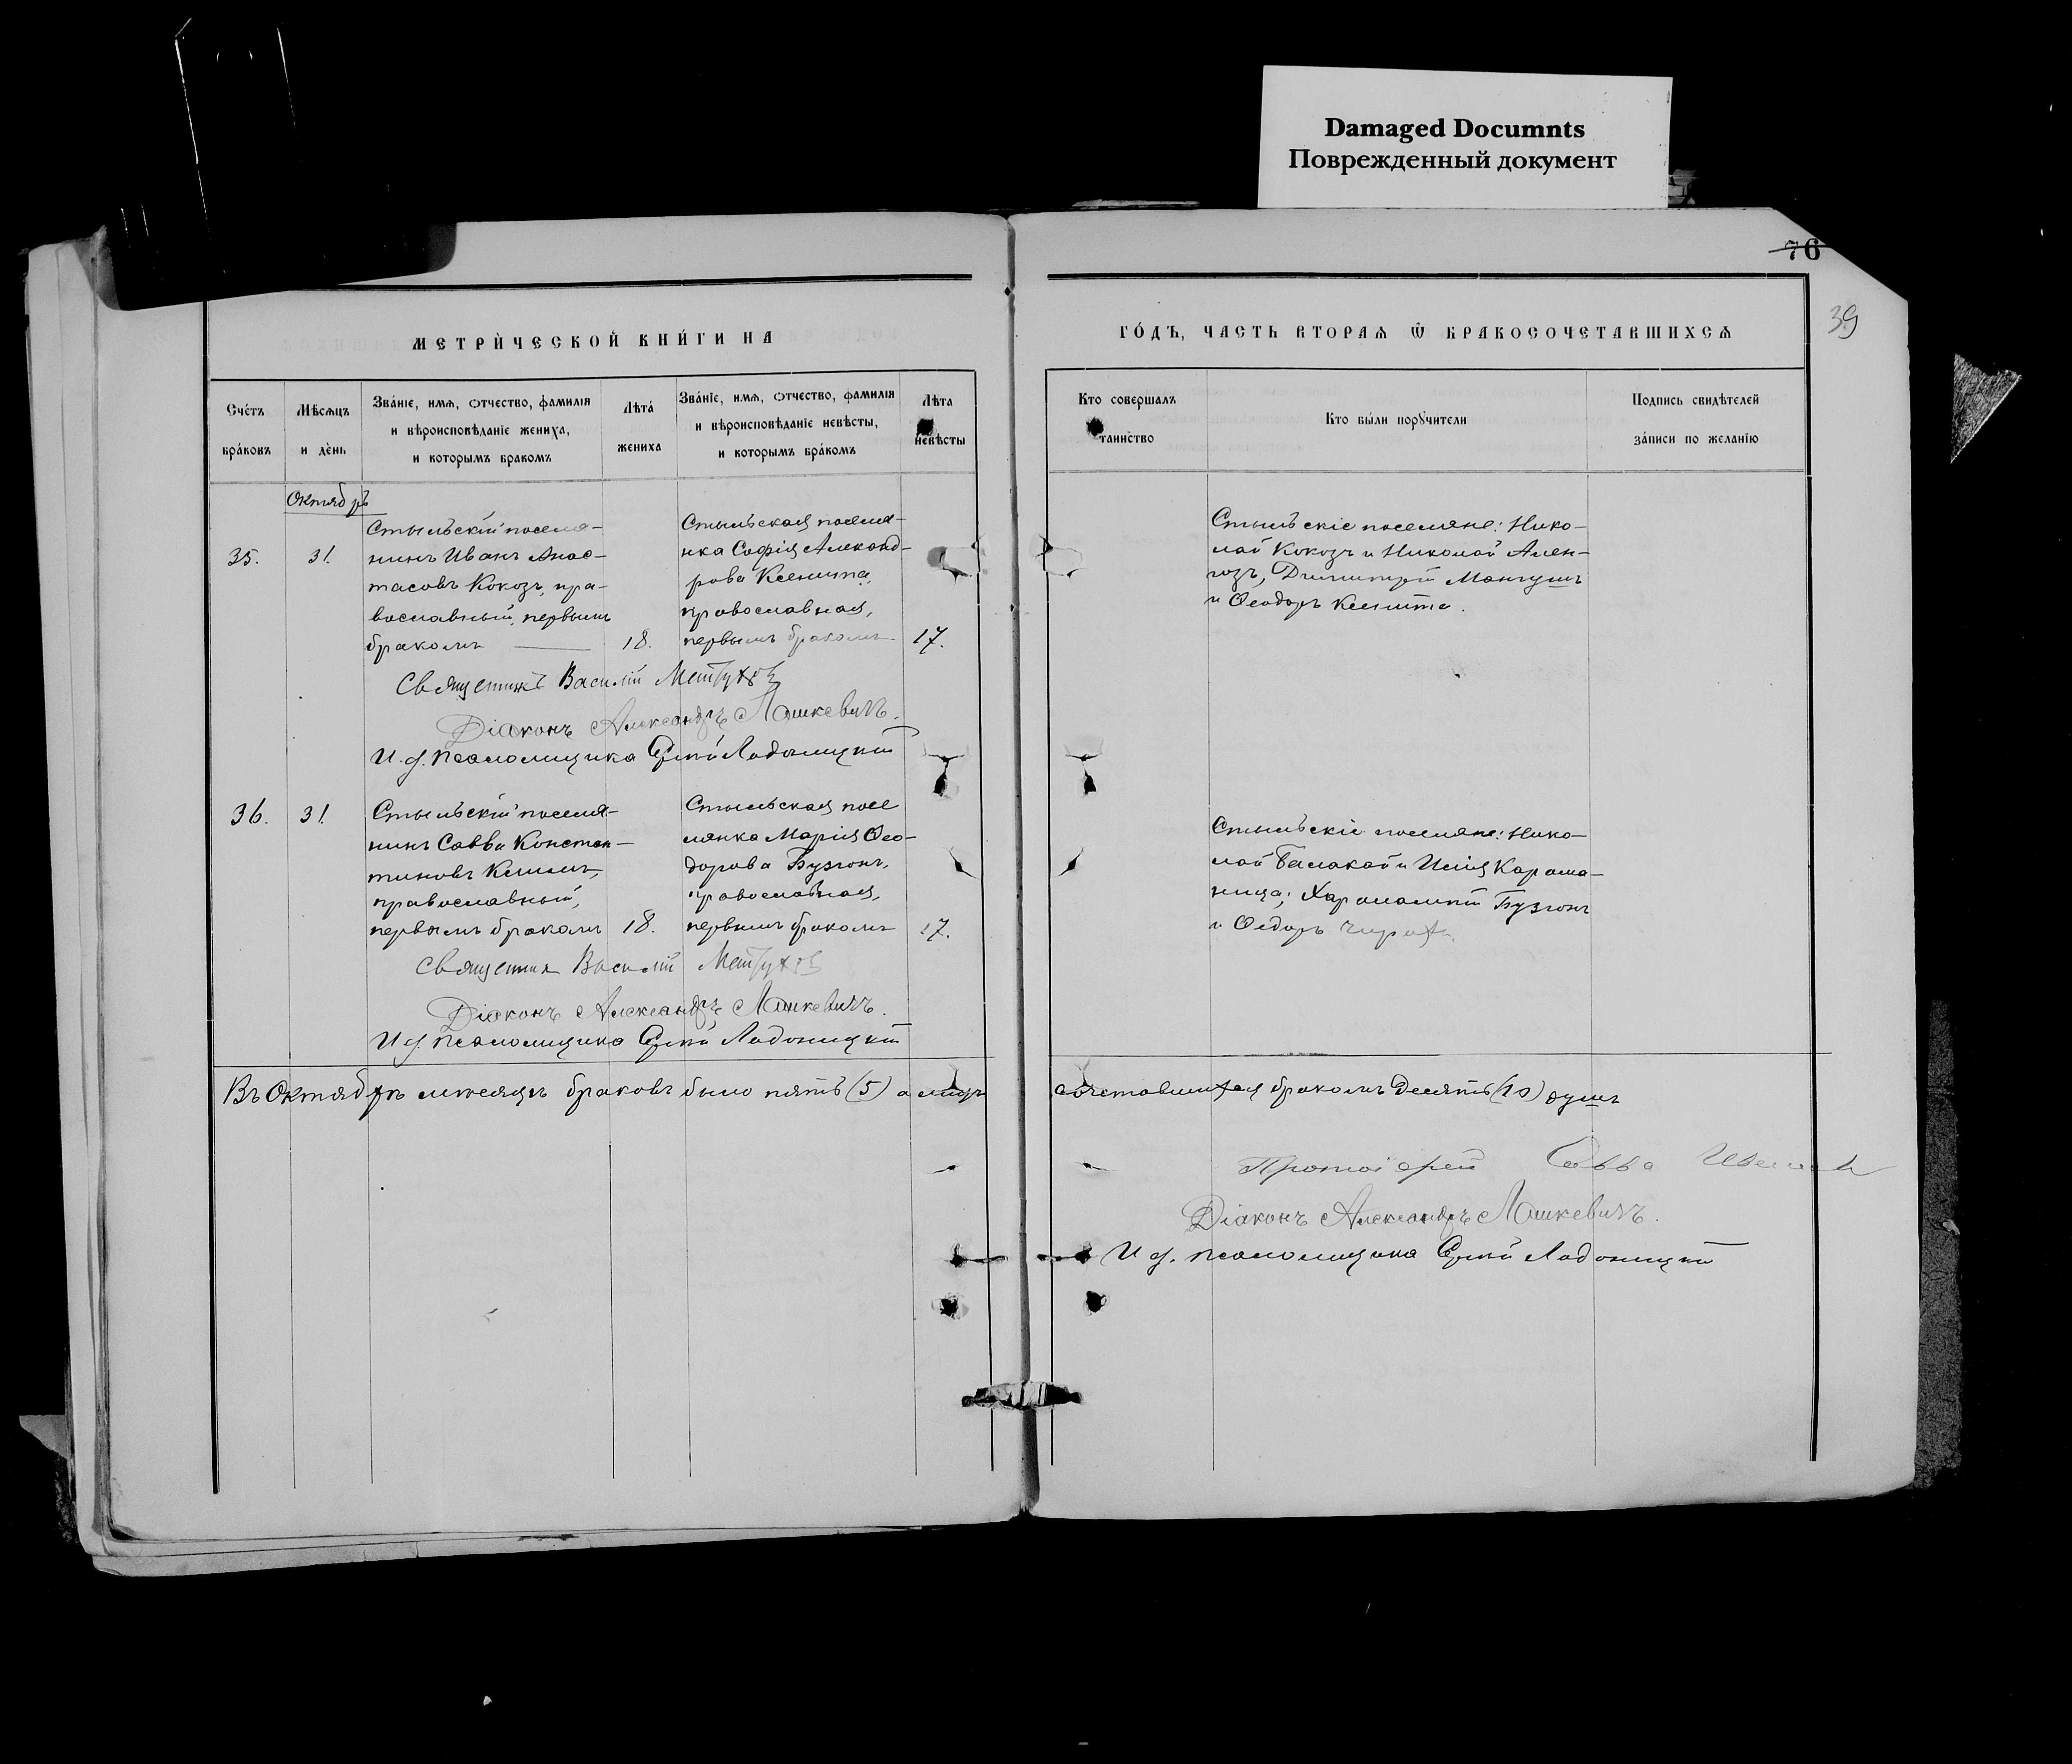 Damaged Documnts
Поврежденный документ
76
39
МЕТРИ́ЧЕСКОЙ КНИ́ГИ НА
ГО́ДЪ, ЧАСТЬ ВТОРАѦ Ѿ БРАКОСОЧЕТАВШИХСѦ
Сче́тъ
бра́ковъ
Мѣсѧцъ
и де́нь
Зва́нїе, имѧ, ѻтчество, фамилїѧ
и вѣроисповѣданїе жениха,
и которымъ бракомъ
Лѣта́
жениха
Зва́нїе, имѧ, ѻтчество, фамилїѧ
и вѣроисповѣданїе невѣсты,
и которымъ бра́комъ
Лѣта
невѣсты
Кто совершалъ
таинство
Кто бы́ли порꙋчители
Подпись свидѣтелей
за́писи по желанїю
Октябрь
35.
31.
Стыльскій поселя-
нинъ Иванъ Анас-
тасовъ Кокозъ, пра-
вославный, первымъ
бракомъ
18.
Стыльская поселя-
нка Софія Александ-
рова Ксенита,
православная,
первымъ бракомъ
17.
Стыльскіе поселяне: Нико-
лай Кокозъ и Николай
Димитрій Мангушъ
и Ѳеодоръ Ксенита.
Священникъ Василій
Діаконъ Александръ Лашкевичъ.
И. д. псаломщика
36.
31.
Стыльскій поселя-
нинъ Савва Констан-
тиновъ
православный,
первымъ бракомъ
18.
Стыльская посе
лянка Марія Ѳео-
дорова Бузгонъ,
православная,
первымъ бракомъ
17.
Стыльскіе поселяне: Нико-
лай Балакай и Илія Карама-
ница; Харалампій Бузгонъ
и Ѳедоръ
Священник Василій
Діаконъ Александръ Лашкевичъ.
И д. псаломщика
Въ Октябрѣ мѣсяцѣ браковъ было пять (5) а лицъ сочетавшихся бракомъ десять (10) душъ
Протоіерей Савва
Діаконъ Александръ Лашкевичъ.
И д. псаломщика